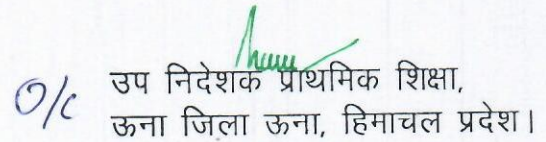 O/c उप निदेशक प्राथमिक शिक्षा,
ऊना जिला ऊना, हिमाचल प्रदेश।